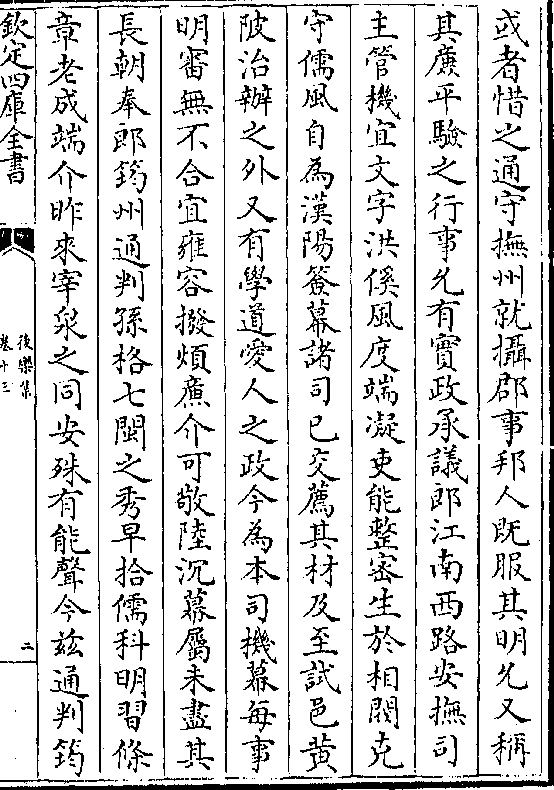 或者惜之通守撫州就攝郡事邦人既服其明允又稱
其廉平驗之行事允有實政承議郎江南西路安撫司
主管機宜文字洪傒風度端凝吏能整密生於相閥克
守儒風自為漢陽簽幕諸司已交薦其材及至試邑黄
陂治辦之外又有學道愛人之政今為本司機幕每事
明審無不合宜雍容撥煩廉介可敬陸沉幕屬未盡其
長朝奉郎筠州通判孫格七閩之秀早拾儒科明習條
章老成端介昨來宰泉之同安殊有能聲今兹通判筠
欽定四庫全書
後樂集
卷十三
二